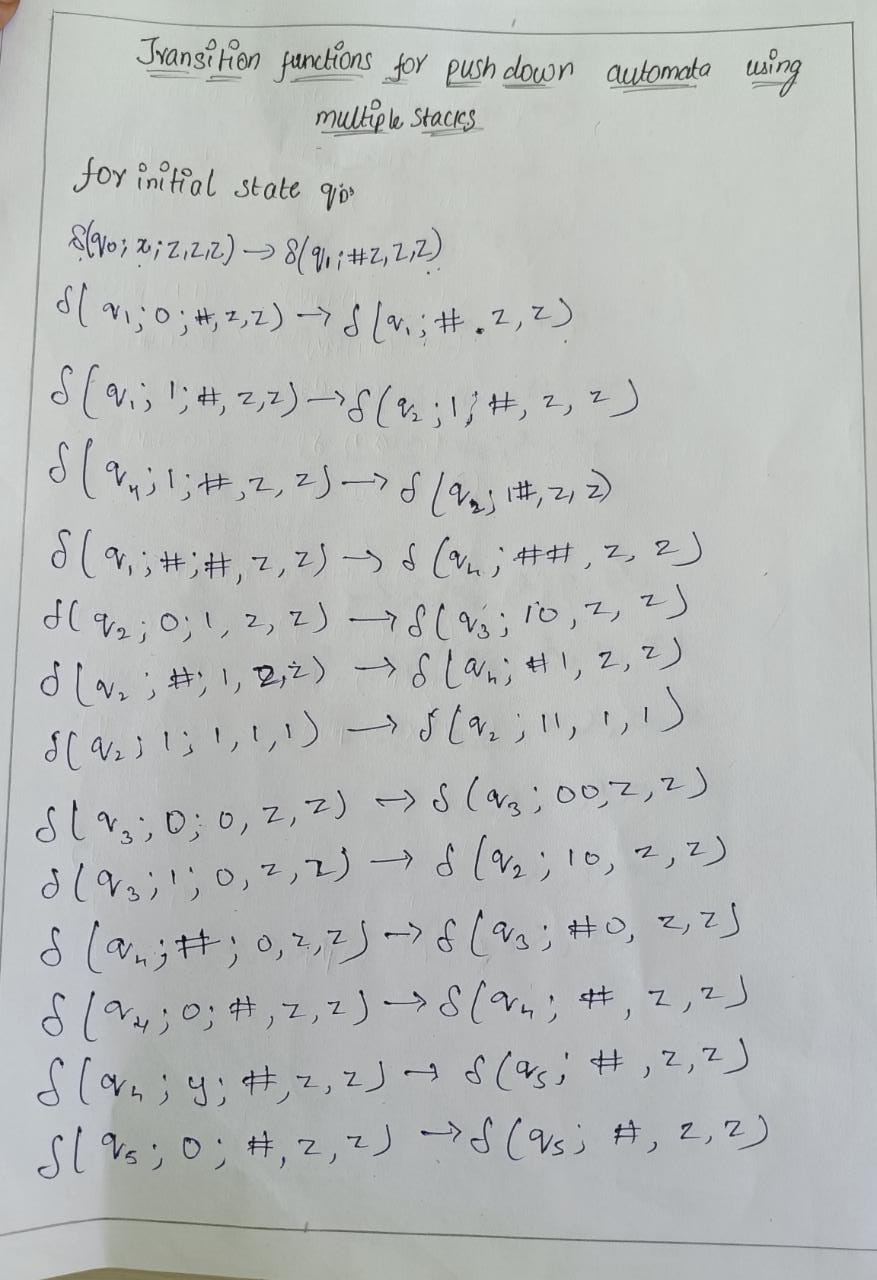 Transition functions for push down automata using
multiple stacks
for initial state q0,
δ(q0; x; z,z,z) → δ(q1; #z,z,z)
δ(q1; 0; #, z,z) → δ(q1; #, z, z)
δ(q1; 1; #, z,z) → δ(q2; 1; #, z, z)
δ(q4; 1; #, z, z) → δ(q2; 1#, z, z)
δ(q1; #; #, z, z) → δ(q4; ##, z, z)
δ(q2; 0; 1, z, z) → δ(q3; 10, z, z)
δ(q2; #; 1, z,z) → δ(q4; #1, z, z)
δ(q2; 1; 1, 1, 1) → δ(q2; 11, 1, 1)
δ(q3; 0; 0, z, z) → δ(q3; 00, z, z)
δ(q3; 1; 0, z, z) → δ(q2; 10, z, z)
δ(q4; #; 0, z, z) → δ(q3; #0, z, z)
δ(q4; 0; #, z, z) → δ(q4; #, z, z)
δ(q4; y; #, z, z) → δ(q5; #, z, z)
δ(q5; 0; #, z, z) → δ(q5; #, z, z)